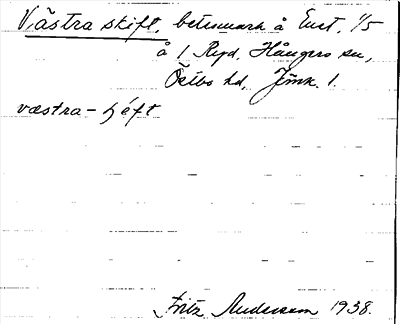 Västra skift, betesmark å Enst. 1/5
å 1 Ryd, Hångers sn,
Östbo hd, Jönk. l.
væstra-ʃéft
Fritz Andersson 1938.